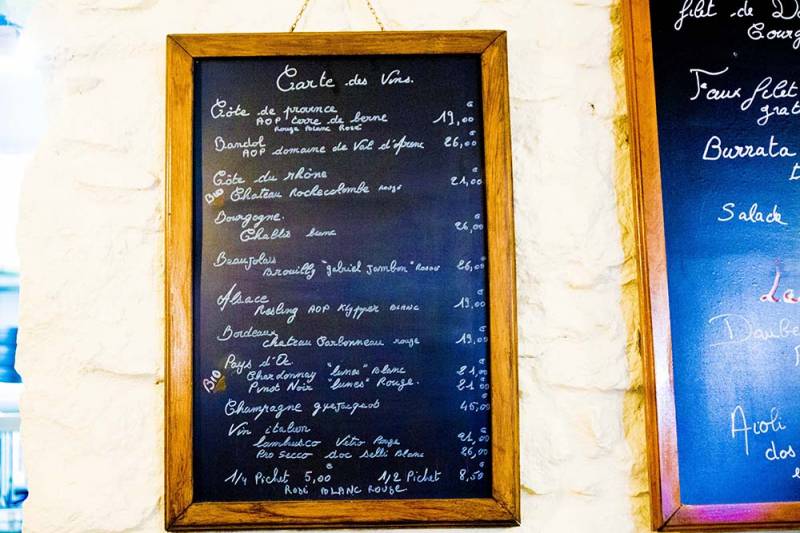 Carte des Vins.
Côte de provence
AOP terre de berne 19,00 €
Rouge Blanc Rosé
Bandol 26,00 €
AOP domaine de Val d'Arenc
Côte du rhône 21,00 €
BIO Chateau Rochecolombe rougé
Bourgogne. 26,00 €
Chablis blanc
Beaujolais 26,00 €
Brouilly "gabriel Jambon"
Alsace 19,00 €
Resling AOP Klipper BLANC
Bordeaux 19,00 €
chateau Carbonneau rouge
Pays d'Oc
BIO Chardonnay "lunes" Blanc 21,00 €
Pinot Noir "lunes" Rouge. 21,00 €
Champagne 45,00 €
Vin italien
Lambrusco Vitro Rouge 21,00 €
Pro Secco doc Selli Blanc 26,00 €
1/4 Pichet 5,00 € 1/2 Pichet 8,50 €
Rosé BLANC ROUGE
filet de
Faux filet
Burrata
Salade
La
Daube
Aïoli
dos